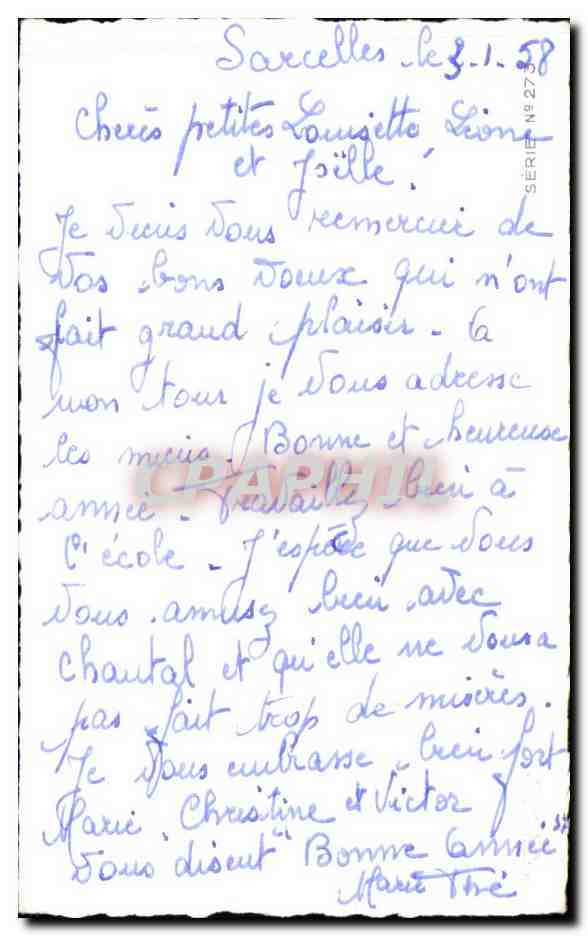 Sarcelles le 3.1.58
SÉRIE Nº 273
Cheres petites Louisette Léone
et Joëlle!
Je viens vous remercier de
vos bons voeux qui m'ont
fait grand plaisir. a
mon tour je vous adresse
les miens. Bonne et heureuse
année. Travaillez bien à
l'école. J'espère que vous
vous amusez bien avec
Chantal et qu'elle ne vous a
pas fait trop de misères.
Je vous embrasse bien fort
Marie Christine et Victor
vous disent "Bonne année"
Marie Thé
CPARAMA